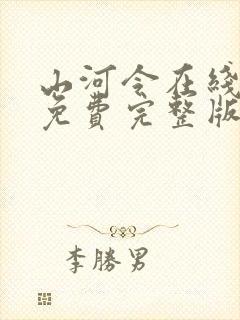 山河令在綫
免費完整版
李勝男